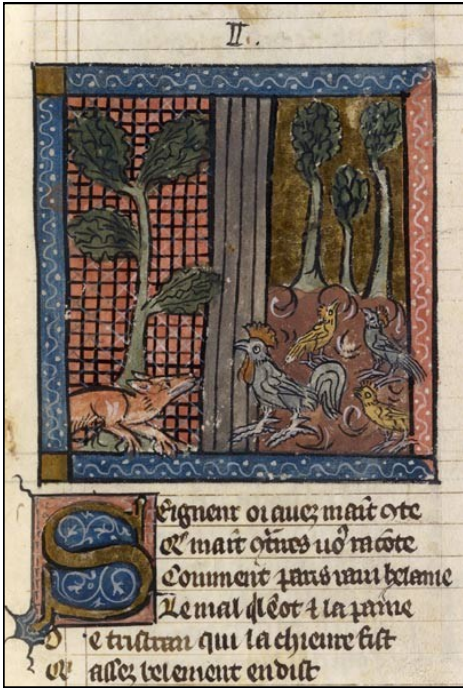 II.
Seigneur oi auez mait ꝯte
Qe mait ꝯtres uoꝰ racote
Comment paris raui helaine
Le mal qil eot ⁊ la paine
De tristran qui la chieure fist
assez belement en dist